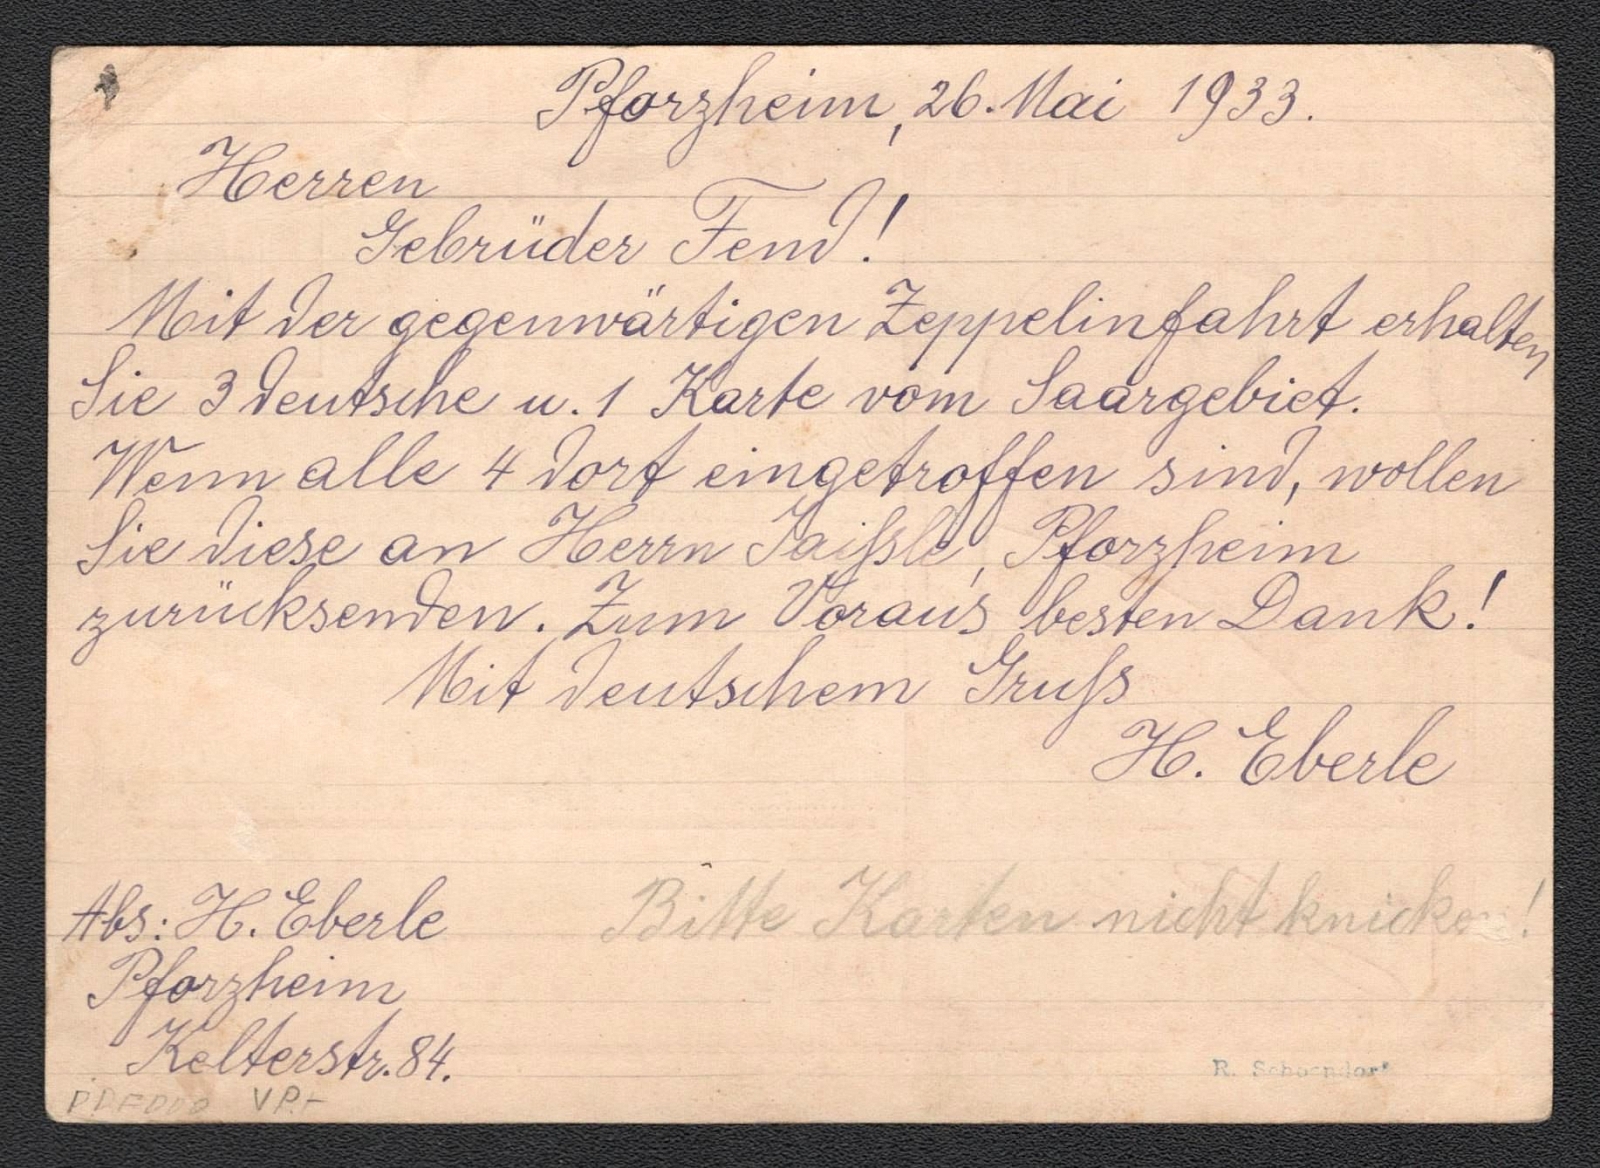 Pforzheim, 26. Mai 1933.
Herren
Gebrüder Fend!
Mit der gegenwärtigen Zeppelinfahrt erhalten
Sie 3 deutsche u. 1 Karte vom Saargebiet.
Wenn alle 4 dort eingetroffen sind, wollen
Sie diese an Herrn Jaißle, Pforzheim
zurücksenden. Zum Voraus besten Dank!
Mit deutschem Gruß
H. Eberle
Bitte Karten nicht knicken!
Abs: H. Eberle
Pforzheim
Kelterstr. 84.
R.